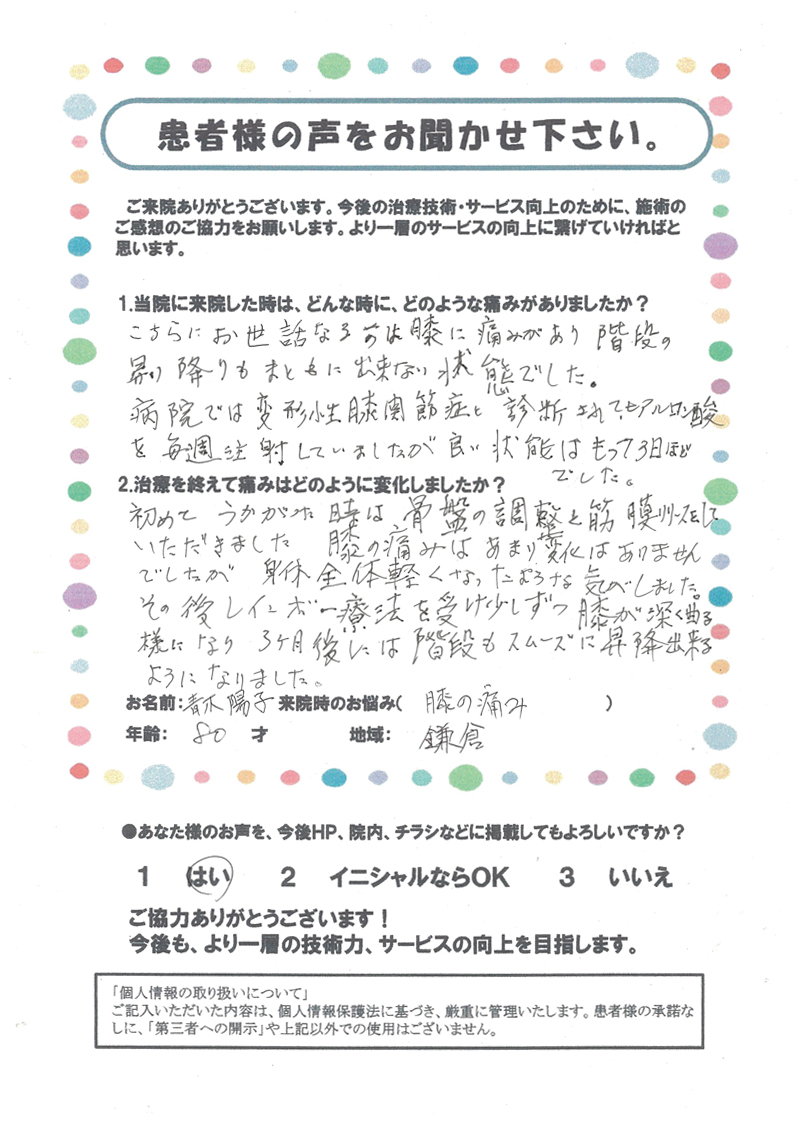 患者様の声をお聞かせ下さい。
ご来院ありがとうございます。今後の治療技術・サービス向上のために、施術の
ご感想のご協力をお願いします。より一層のサービスの向上に繋げていければと
思います。
1.当院に来院した時は、どんな時に、どのような痛みがありましたか？
こちらにお世話なるのは膝に痛みがあり階段の
昇り降りもまともに出来ない状態でした。
病院では変形性膝関節症と診断されてヒアルロン酸
を毎週注射していましたが良い状態はもって3日ほど
でした。
2.治療を終えて痛みはどのように変化しましたか？
初めてうかがった時は骨盤の調整と筋膜リリースをして
いただきました 膝の痛みはあまり変化はありません
でしたが身体全体軽くなったような気がしました。
その後レインボー療法を受け少しずつ膝が深く曲る
様になり3ヶ月後には階段もスムーズに昇降出来る
ようになりました。
お名前:青木陽子 来院時のお悩み( 膝の痛み )
年齢: 80 才 地域: 鎌倉
●あなた様のお声を、今後HP、院内、チラシなどに掲載してもよろしいですか？
1 はい 2 イニシャルならOK 3 いいえ
ご協力ありがとうございます！
今後も、より一層の技術力、サービスの向上を目指します。
「個人情報の取り扱いについて」
ご記入いただいた内容は、個人情報保護法に基づき、厳重に管理いたします。患者様の承諾な
しに、「第三者への開示」や上記以外での使用はございません。